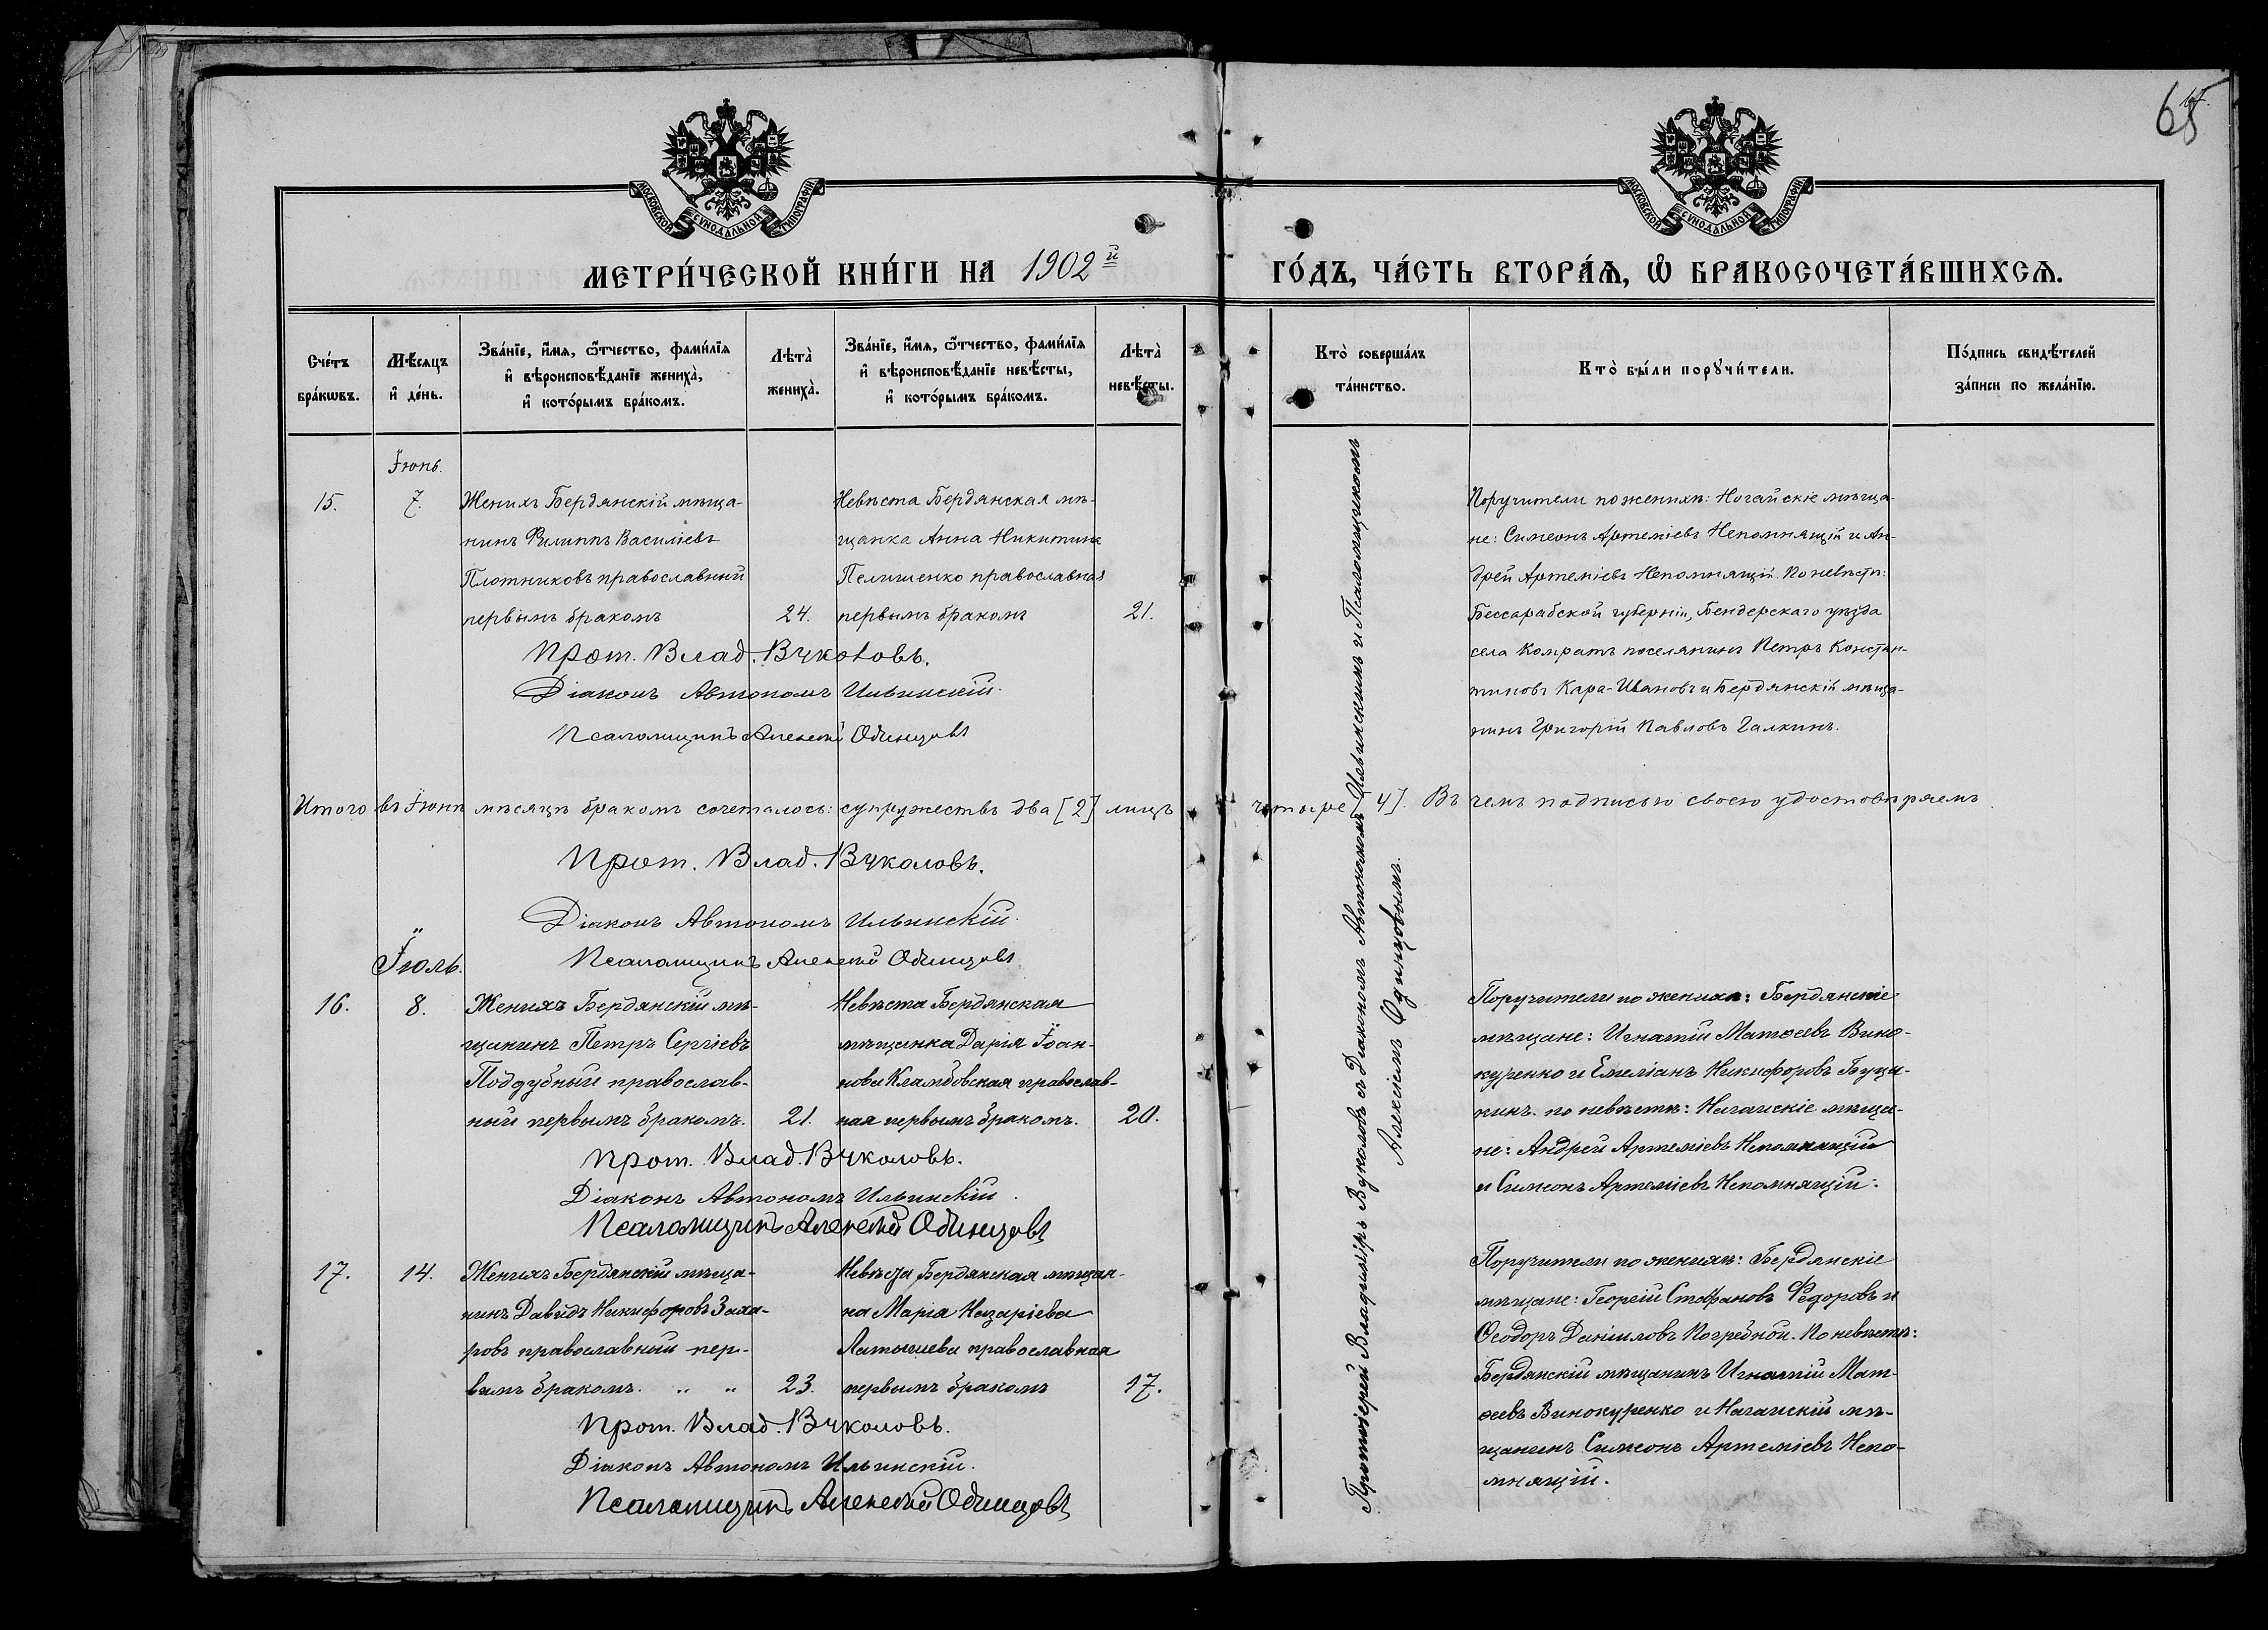 МОСКОВСКОЙ СѴНОДАЛЬНОЙ ТИПОГРАФІИ
МОСКОВСКОЙ СѴНОДАЛЬНОЙ ТИПОГРАФІИ
65
МЕТРИ́ЧЕСКОЙ КНИ́ГИ НА 1902й ГО́ДЪ, ЧА́СТЬ ВТОРА́Ѧ, Ѽ БРАКОСОЧЕТА́ВШИХСѦ.
Сче́тъ бра́кѡвъ.
Мѣ́сяцъ и҆ де́нь.
Зва́нїе, и҆́мя, ѻ҆́тчество, фами́лїя и҆ вѣроисповѣ́данїе жениха̀, и҆ кото́рымъ бра́комъ.
Лѣта̀ жениха̀.
Зва́нїе, и҆́мя, ѻ҆́тчество, фами́лїя и҆ вѣроисповѣ́данїе невѣ́сты, и҆ кото́рымъ бра́комъ.
Лѣта̀ невѣ́сты.
Кто̀ соверша́лъ та́инство.
Кто̀ бы́ли порꙋчи́тели.
По́дпись свидѣ́телей за́писи по жела́нїю.
Іюнь.
15.
7.
Женихъ Бердянскій мѣща-
нинъ Филиппъ Василіевъ
Плотниковъ православный
первымъ бракомъ
24.
Невѣста Бердянская мѣ-
щанка Анна Никитина
Пелишенко православная
первымъ бракомъ
21.
Поручители по женихѣ: Ногайскіе мѣща-
не: Симеонъ Артеміевъ Непомнящій и Ан-
дрей Артеміевъ Непомнящій. По невѣстѣ:
Бессарабской губерніи, Бендерскаго уѣзда
села Комратъ поселянинъ Петръ Констан-
тиновъ Кара-Ивановъ и Бердянскій мѣща-
нинъ Григорій Павловъ Галкинъ.
Прот. Влад. Вуколовъ.
Діаконъ Автономъ Ильинскій.
Псаломщикъ Алексѣй Одинцовъ
Итого въ Іюнѣ мѣсяцѣ бракомъ сочеталось: супружествъ два [2] лицъ четыре [4]. Въ чемъ подписью своею удостовѣряемъ.
Прот. Влад. Вуколовъ.
Діаконъ Автономъ Ильинскій.
Псаломщикъ Алексѣй Одинцовъ
Іюль.
16.
8.
Женихъ Бердянскій мѣ-
щанинъ Петръ Сергіевъ
Поддубный православ-
ный первымъ бракомъ.
21.
Невѣста Бердянская
мѣщанка Дарія Іоан-
нова православ-
ная первымъ бракомъ.
20.
Поручители по женихѣ: Бердянскіе
мѣщане: Игнатій Матѳеевъ Вино-
куренко и Емеліанъ Никифоровъ
по невѣстѣ: Ногайскіе мѣща-
не: Андрей Артеміевъ Непомнящій
и Симеонъ Артеміевъ Непомнящій.
Прот. Влад. Вуколовъ.
Діаконъ Автономъ Ильинскій.
Псаломщикъ Алексѣй Одинцовъ
17.
14.
Женихъ Бердянскій мѣща-
нинъ Давидъ Никифоровъ Заха-
ровъ православный пер-
вымъ бракомъ. " "
23.
Невѣста Бердянская мѣщан-
ка Марія Назаріева
Латышева православная
первымъ бракомъ
17.
Поручители по женихѣ: Бердянскіе
мѣщане: Георгій Стефановъ Федоровъ и
Ѳеодоръ Даниловъ Погребной. По невѣстѣ:
Бердянскій мѣщанинъ Игнатій Мат-
ѳеевъ Винокуренко и Ногайскій мѣ-
щанинъ Симеонъ Артеміевъ Непо-
мнящій.
Прот. Влад. Вуколовъ.
Діаконъ Автономъ Ильинскій.
Псаломщикъ Алексѣй Одинцовъ
Протоіерей Владиміръ Вуколовъ съ Діакономъ Автономомъ Ильинскимъ и Псаломщикомъ
Алексіемъ Одинцовымъ.